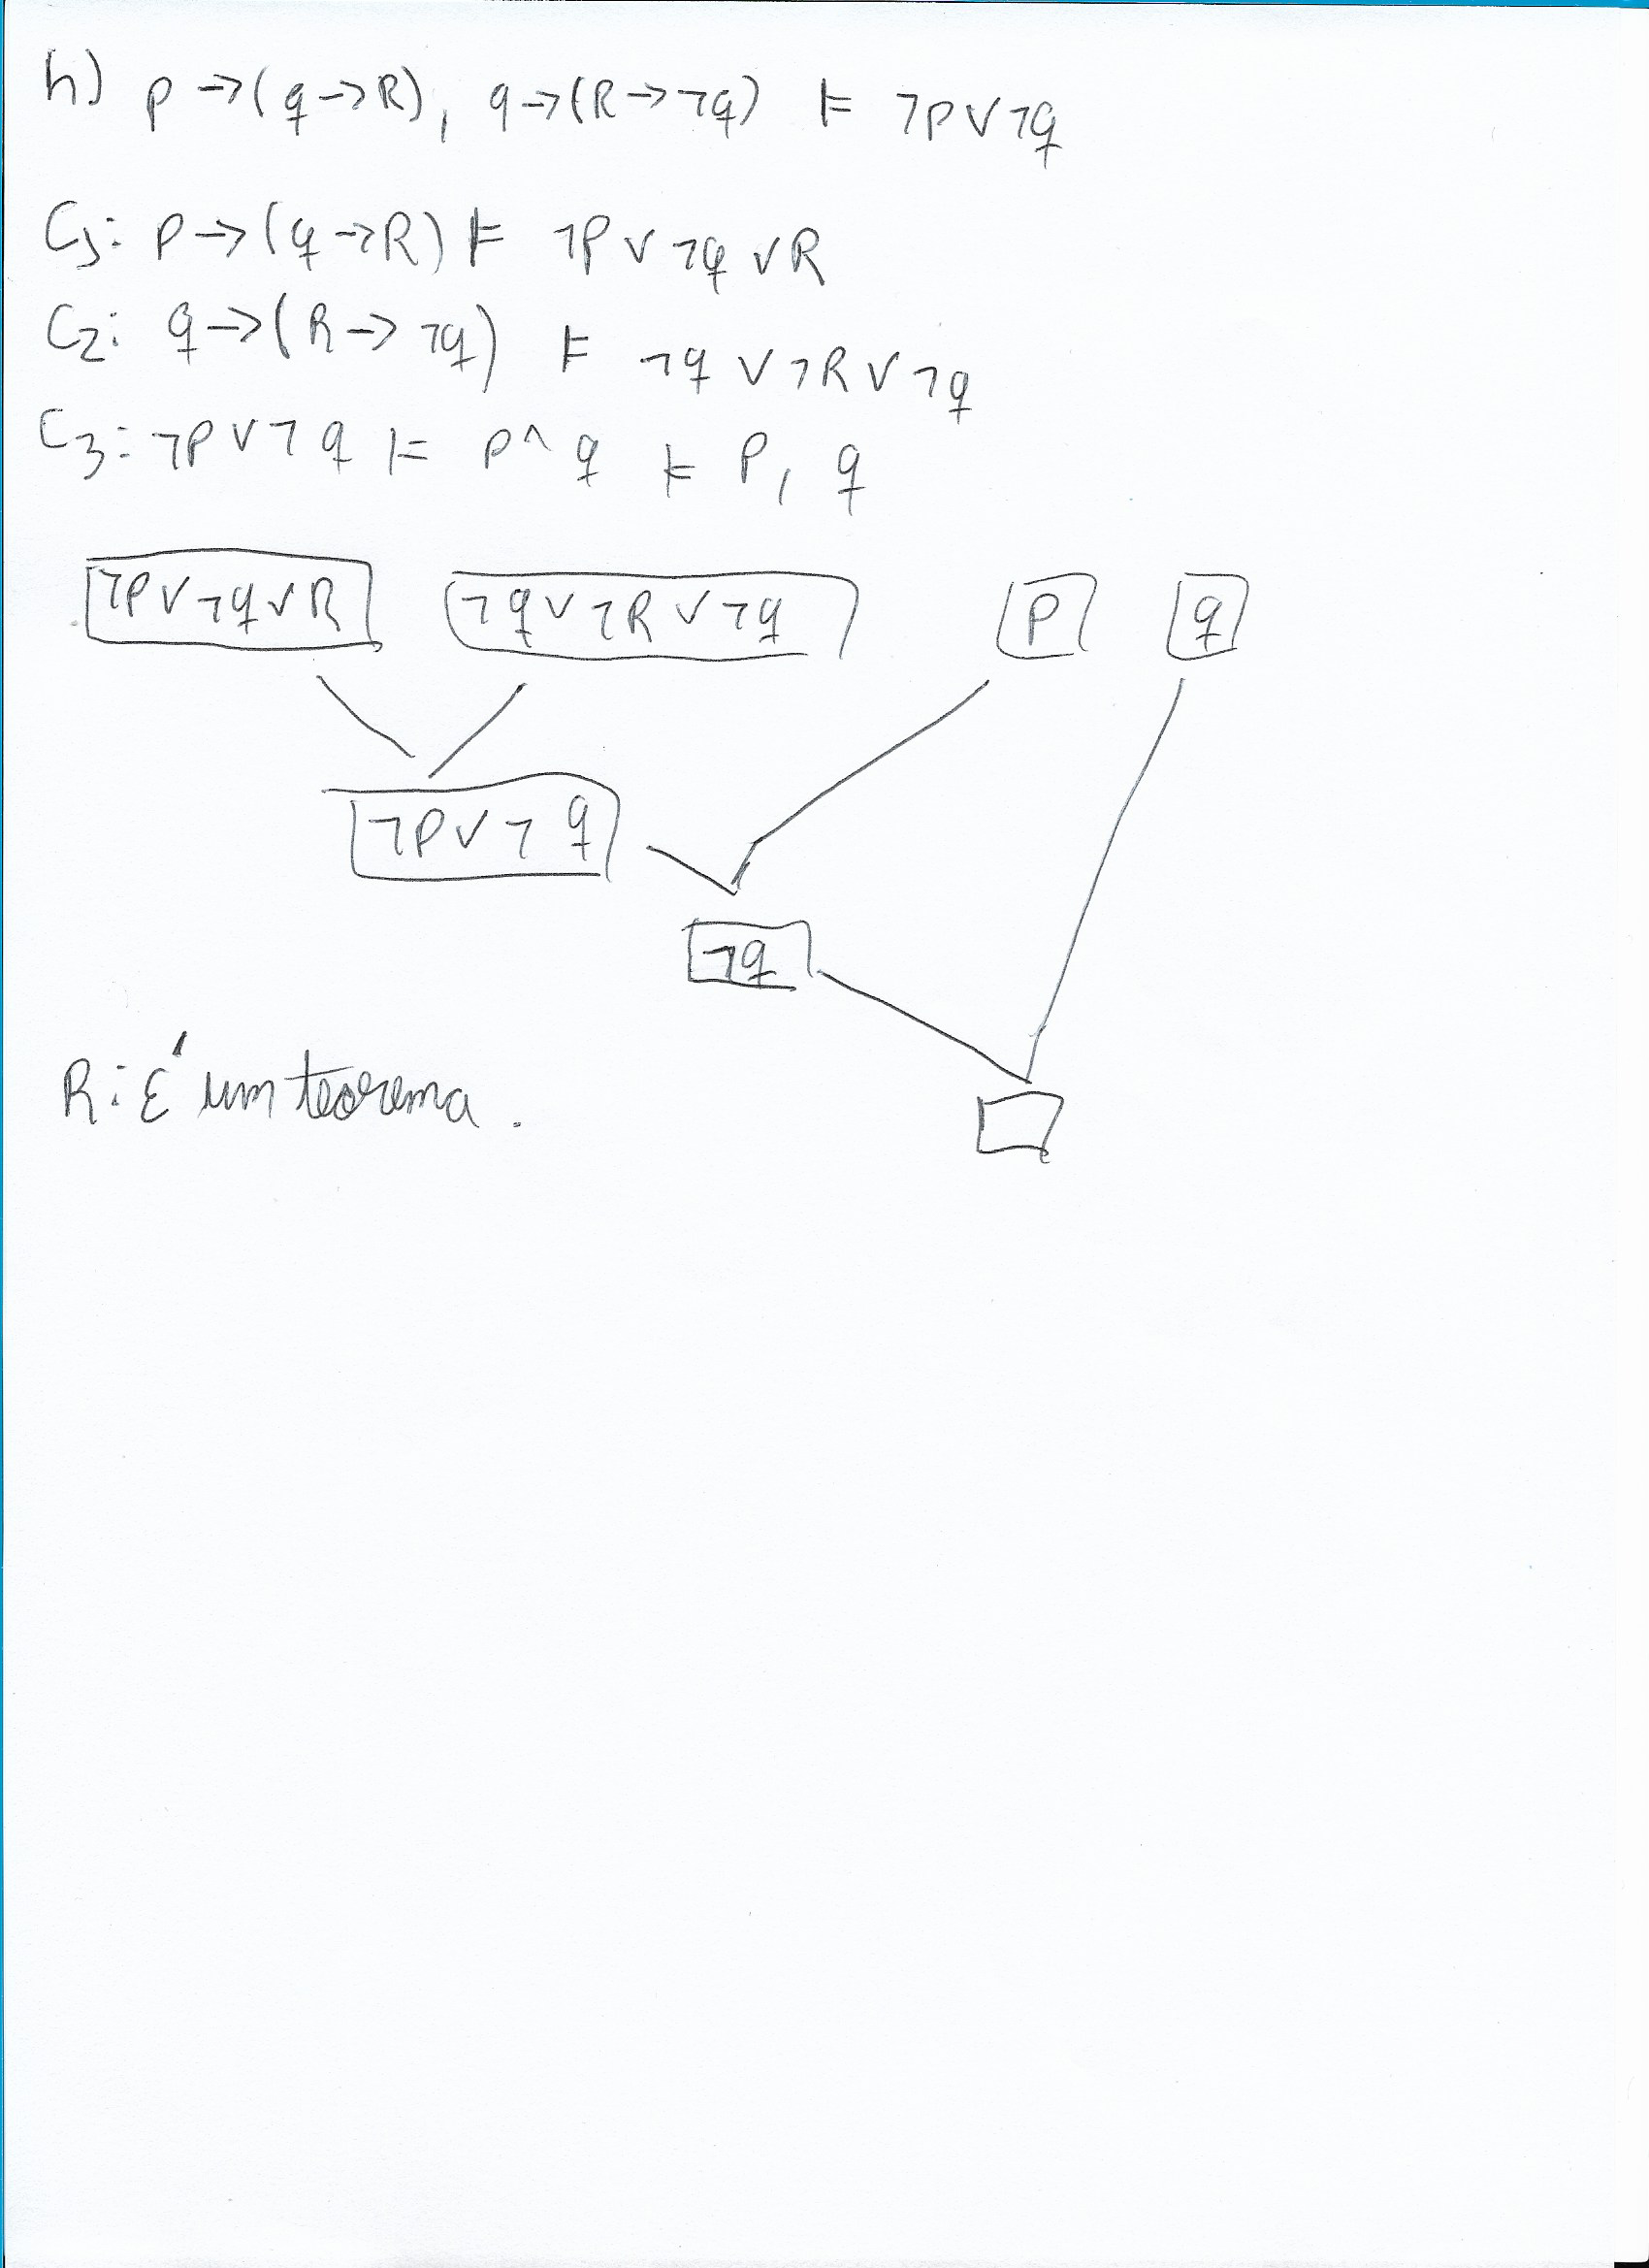 h) p → (q → R), q → (R → ¬q) ⊨ ¬p ∨ ¬q
C1: p → (q → R) ⊨ ¬P ∨ ¬q ∨ R
C2: q → (R → ¬q) ⊨ ¬q ∨ ¬R ∨ ¬q
C3: ¬P ∨ ¬q ⊨ p ^ q ⊨ P, q
¬P ∨ ¬q ∨ R ¬q ∨ ¬R ∨ ¬q p q
¬P ∨ ¬q
¬q
R: É um teorema.